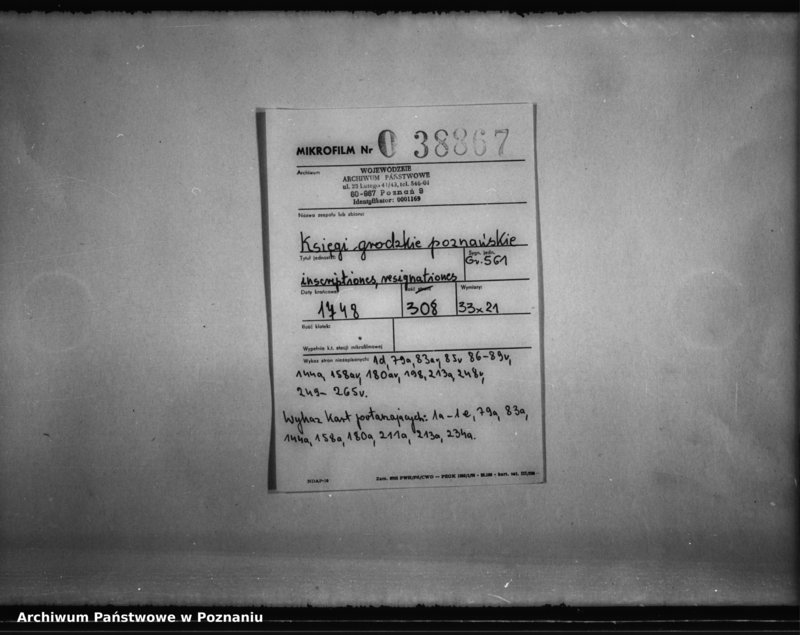 MIKROFILM Nr 0 38867
Archiwum
WOJEWÓDZKIE
ARCHIWUM PAŃSTWOWE
ul. 23 Lutego 41/43, tel. 546-01
60-967 Poznań 9
Identyfikator: 0001169
Nazwa zespołu lub zbioru:
Księgi grodzkie poznańskie
Tytuł jednostki: Sygn. jedn.
inscriptiones, resignationes Gr. 561
Daty krańcowe: Ilość Wymiary:
1748 308 33x21
Ilość klatek:
Wypełnia k.t. stacji mikrofilmowej
Wykaz stron niezapisanych: 1d, 79a, 83av, 85v 86-89v,
144a, 158av, 180av, 198, 213a, 248v,
249- 265v.
Wykaz kart powtarzających: 1a-1e, 79a, 83a,
144a, 158a, 180a, 211a, 213a, 234a.
NDAP-10
Archiwum Państwowe w Poznaniu